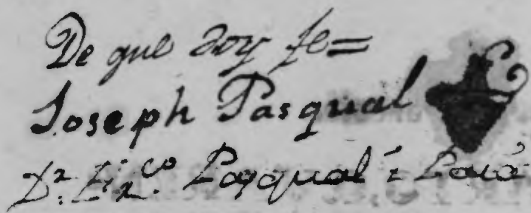 De que doy fe=
Joseph Pasqual
Pasqual